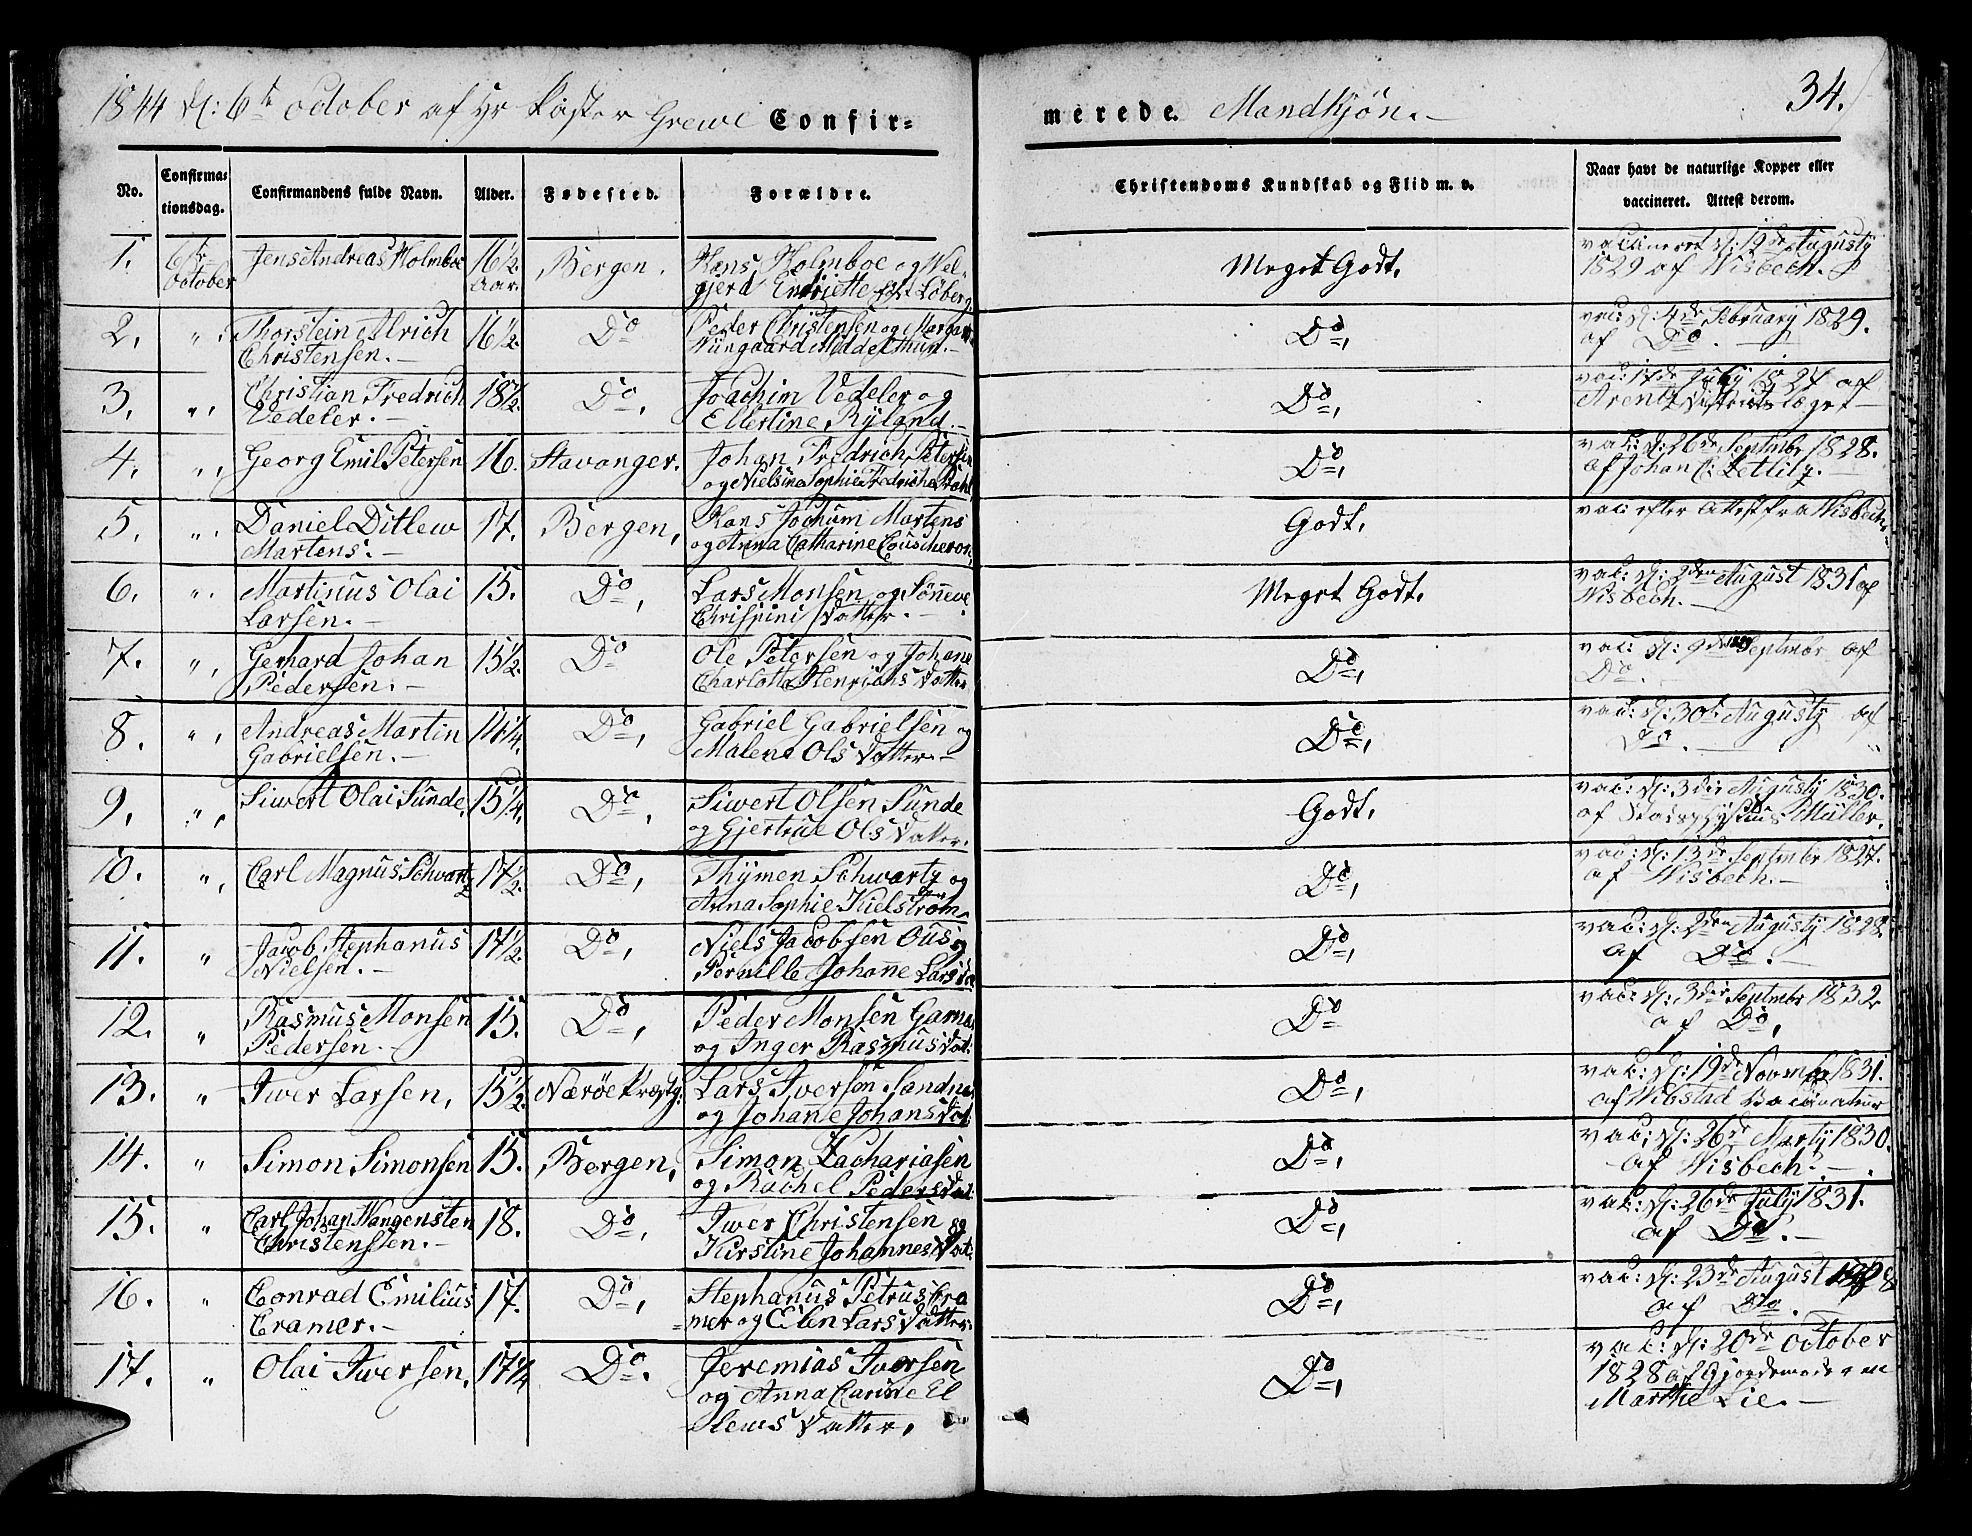 1844 d: 6te October af Hr Pastor Grewe Confir-
merede. Mandkjøn.
34.
No.
Confirma-
tionsdag.
Confirmandens fulde Navn.
Alder.
Fødested.
Forældre.
Christendoms Kundskab og Flid m. v.
Naar havt de naturlige Kopper eller
vaccineret. Attest derom.
1. 6te October Jens Andreas Holmboe 16½ Aar. Bergen. Hans Holmboe og Wel-
gjerd Enriette født Løberg. Meget Godt. vaccineret d: 19de Augusty
1829 af Wisbech.
2. " Thorstein Alrich
Christensen. 16½. Do Peder Christensen og Margar
Wiingaard Middelthun. Do, vac: d: 4de February 1829.
af Do.
3. " Christian Fredrich
Vedeler. 18½. Do, Joachim Vedeler og
Ellertine Ryland. Do, vac: 17de July 1827 af
Arentz Districts Læge
4. " Georg Emil Petersen 16. Stavanger. Johan Fredrich Petersen
og Nielsine Sophie Fredriche Do, vac: d: 26de Septmbr 1828.
af Johan C: Zetlitz.
5. " Daniel Ditlew
Martens. 17. Bergen, Hans Jochum Martens
og Anna Catharine Couscheron. Godt. vac: efter Attest fra Wisbech.
6. " Martinus Olai
Larsen. 15. Do, Lars Monsen og Sønneve
Chrispini Datter. Meget Godt. vac: d: 2den August 1831 af
Wisbech.
7. " Gerhard Johan
Pedersen. 15½. Do Ole Petersen og Johane
Charlotta Henrichs Datter Do, vac: d: 9de Septmbr 1829 af
Do.
8. " Andreas Martin
Gabrielsen. Do, Gabriel Gabrielsen og
Malene Ols Datter. Do, vac: d: 30te Augusty af
Do.
9. " Siwert Olai Sunde. 15¼. Do, Siwert Olsen Sunde
og Gjertrue Ols Datter. Godt. vac: d: 3die Augusty 1830.
af Stadsphysicus Müller.
10. " Carl Magnus Schvartz 17½. Do, Thymen Schwartz og
Anna Sophie Kielström. Do, vac: d: 13de Septmbr 1827.
af Wisbech.
11. " Jacob Stephanus
Nielsen. 17½. Do, Niels Jacobsen Ous og
Pernille Johanne Lars D Do, vac: d: 2den Augusty 1828.
af Do.
12. " Rasmus Monsen
Pedersen. 15. Do, Peder Monsen Garnæs
og Inger Rasmus Dat: Do vac: d: 3die Septmbr 1832
af Do,
13. " Iwer Larsen, 15½. Nærøe Præstg: Lars Iversen Sandnes
og Johanne Johans Dat. Do, vac: d: 19de Novmbr 1831.
af Wibstad Vaccinateur
14. " Simon Simonsen 15. Bergen, Simon Zachariasen
og Rachel Peders Dat. Do, vac: d: 26de Marty 1830.
af Wisbech.
15. " Carl Johan Wangensten
Christenssen. 18. Do, Iwer Christensen og
Kirstine Johannes Dat. Do, vac: d: 26de July 1831.
af Do.
16. " Conrad Emilius
Cramer. 17. Do, Stephanus Petrus Cra
mer og Elen Lars Datter. Do, vac: d: 23de August 1828
af Dto.
17. " Olai Iwersen, 17¼ Do. Jeremias Iversen
og Anna Carine El
lews Datter. Do, vac: d: 20de October
1828 af Gjordemoderen
Marthe Lie.